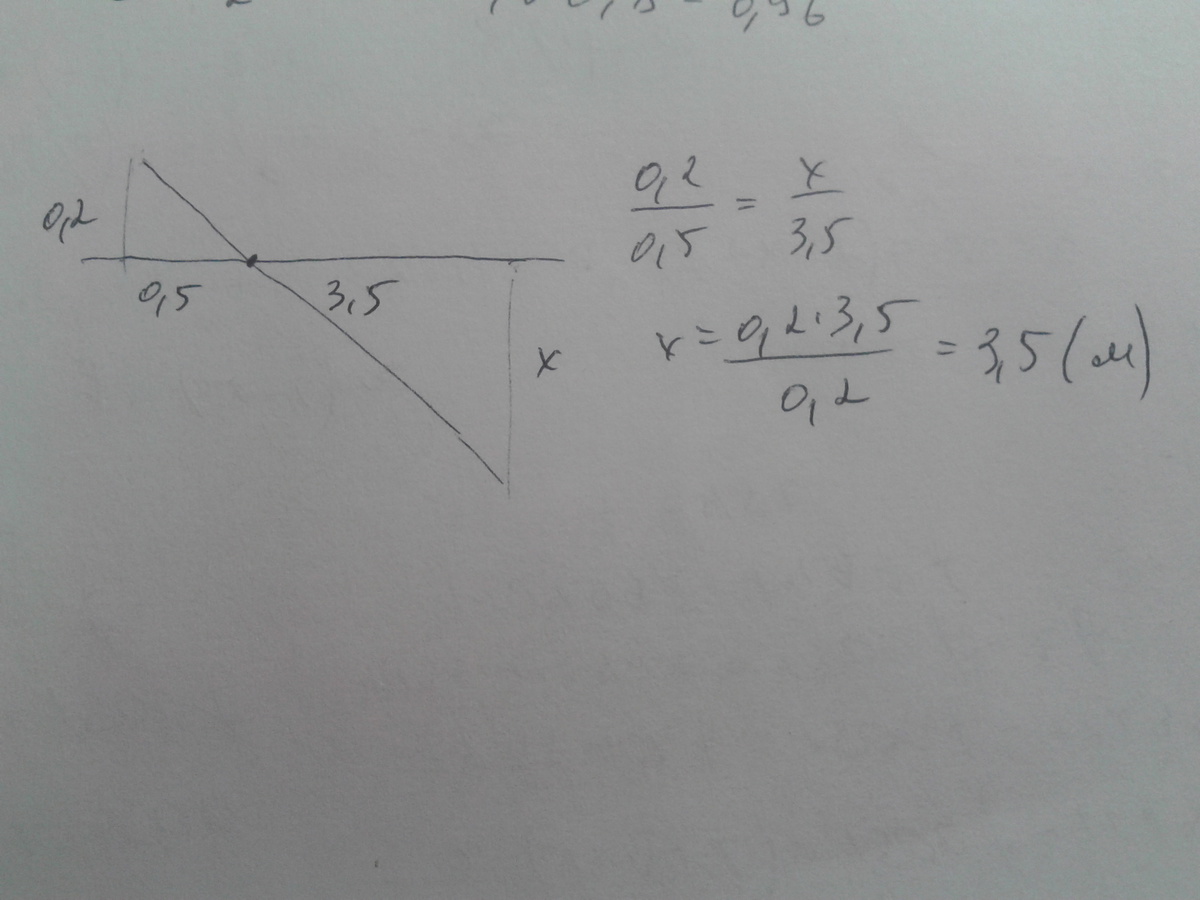 0,2
0,5
3,5
x
0,2/0,5 = x/3,5
x = 0,2·3,5/0,2 = 3,5 (м)